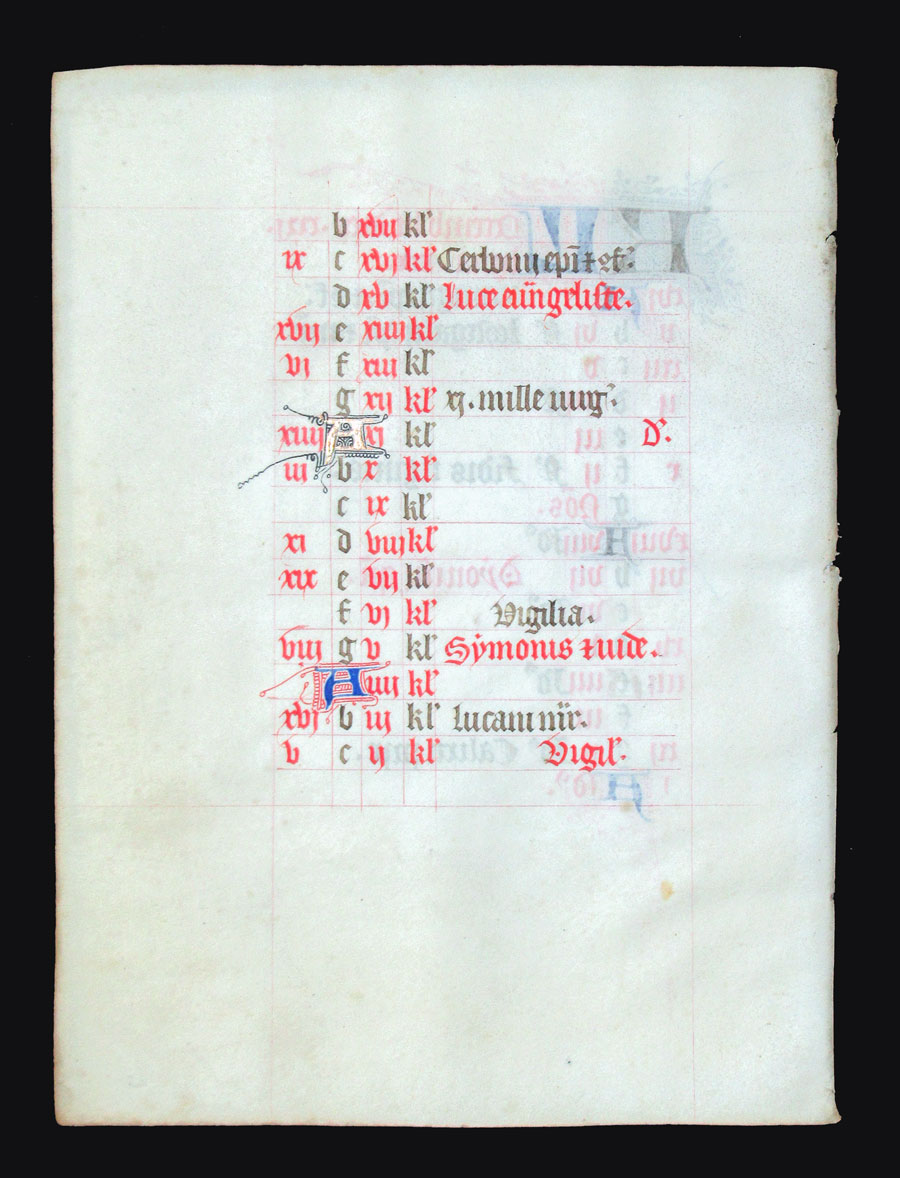 b xvij kl'
ix c xvj kl' Cerbonij epī ⁊ 9f.
d xv kl' Luce euūgeliste.
xvij e xiiij kl'
vj f xiij kl'
g xij kl' xj. mille uirg'.
xiiij A xj kl' D'.
iij b x kl'
c ix kl'
xj d viij kl'
xix e vij kl'
f vj kl' Vigilia.
viij g v kl' Symonis ⁊ iude.
A iiij kl'
xvj b iij kl' Lucani m̄r.
v c ij kl' Vigil'.